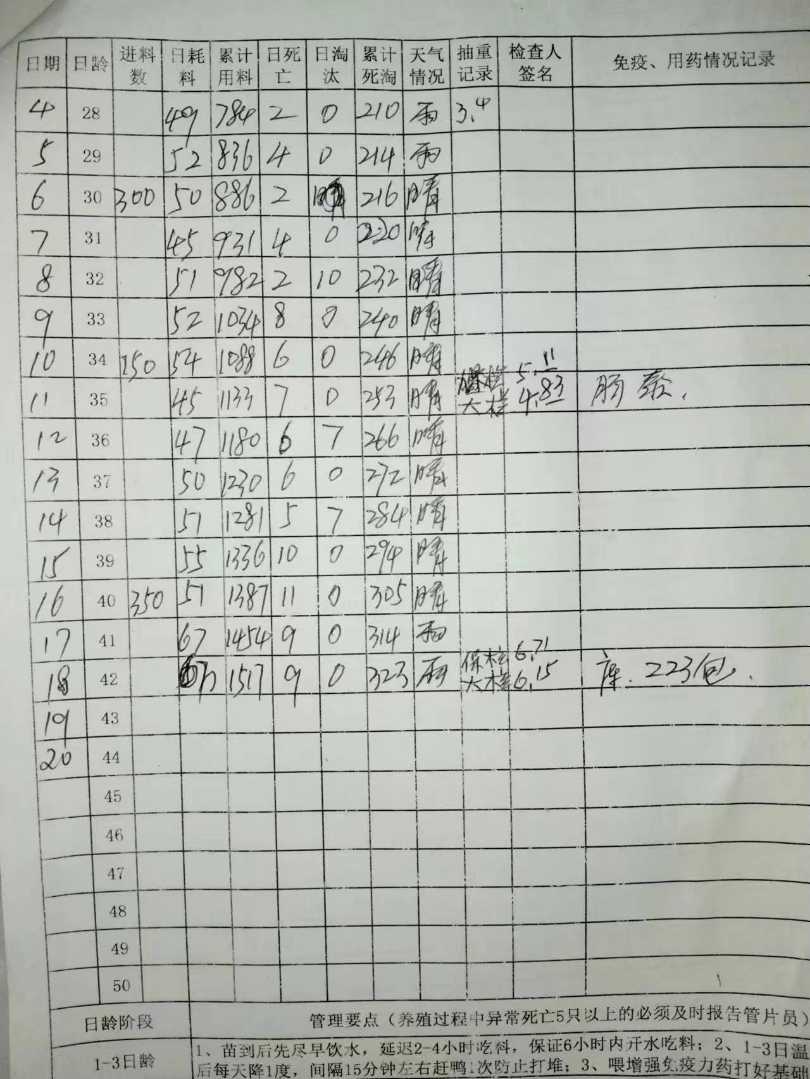 日期 日龄 进料数 日耗料 累计用料 日死亡 日淘汰 累计死淘 天气情况 抽重记录 检查人签名 免疫、用药情况记录
4 28 49 784 2 0 210 雨 3.4
5 29 52 836 4 0 214 雨
6 30 300 50 886 2 216 晴
7 31 45 931 4 0 220 晴
8 32 51 982 2 10 232 晴
9 33 52 1034 8 0 240 晴
10 34 150 54 1088 6 0 246 晴 5.11
11 35 45 1133 7 0 253 晴 大样 4.83 肠
12 36 47 1180 6 7 266 晴
13 37 50 1230 6 0 272 晴
14 38 51 1281 5 7 284 晴
15 39 55 1336 10 0 294 晴
16 40 350 51 1387 11 0 305 晴
17 41 67 1454 9 0 314 雨 6.71
18 42 1517 9 0 323 雨 大样 6.15 库.223包.
19 43
20 44
45
46
47
48
49
50
日龄阶段 管理要点（养殖过程中异常死亡5只以上的必须及时报告管片员）
1-3日龄 1、苗到后先尽早饮水，延迟2-4小时吃料，保证6小时内开水吃料；2、1-3日温
后每天降1度，间隔15分钟左右赶鸭1次防止打堆；3、喂增强免疫力药打好基础